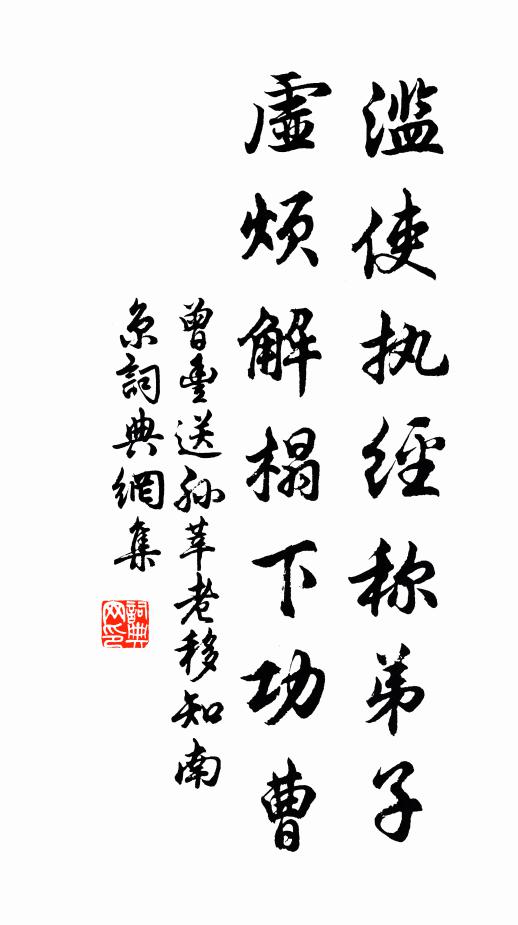 滥使执经称弟子
虚烦解榻下功曹
曾豊送孙莘老移知南
京詞典網集
詞典
网印